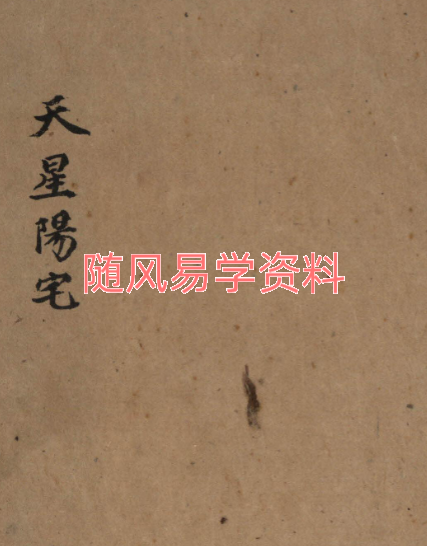 天星陽宅
随风易学资料